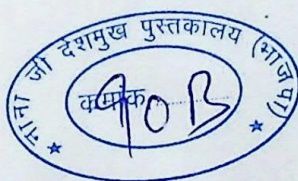 नाना जी देशमुख पुस्तकालय (भाजपा)
क्रमांक.......... 90B